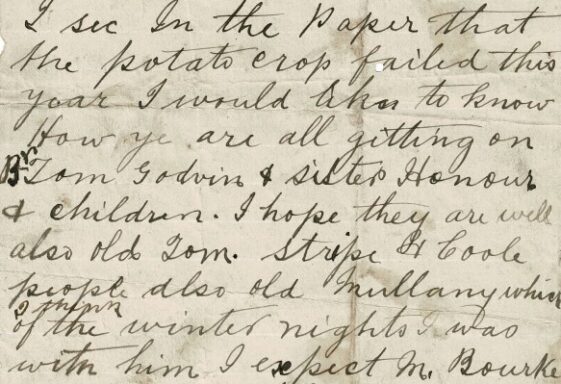 I see In the Paper that
the potato crop failed this
year I would like to know
How ye are all gitting on
Brn Tom Godvin & sister Honour
& children. I hope they are well
also old Tom. Stripe & Coole
people also old Mullany which
I think
of the winter nights I was
with him I expect M. Bourke